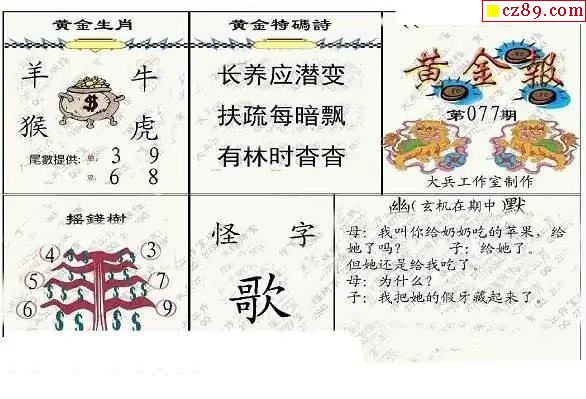 cz89.com
黄金生肖
羊 牛
猴 虎
尾數提供: 单: 3 9
双: 6 8
黄金特碼詩
长养应潜变
扶疏每暗飘
有林时杳杳
黄金報
第077期
大兵工作室制作
摇錢樹
4 3
5 7
6 9
怪 字
歌
幽(玄机在期中)默
母: 我叫你给奶奶吃的苹果，给
她了吗？ 子: 给她了。
但她还是给我吃了。
母: 为什么？
子: 我把她的假牙藏起来了。